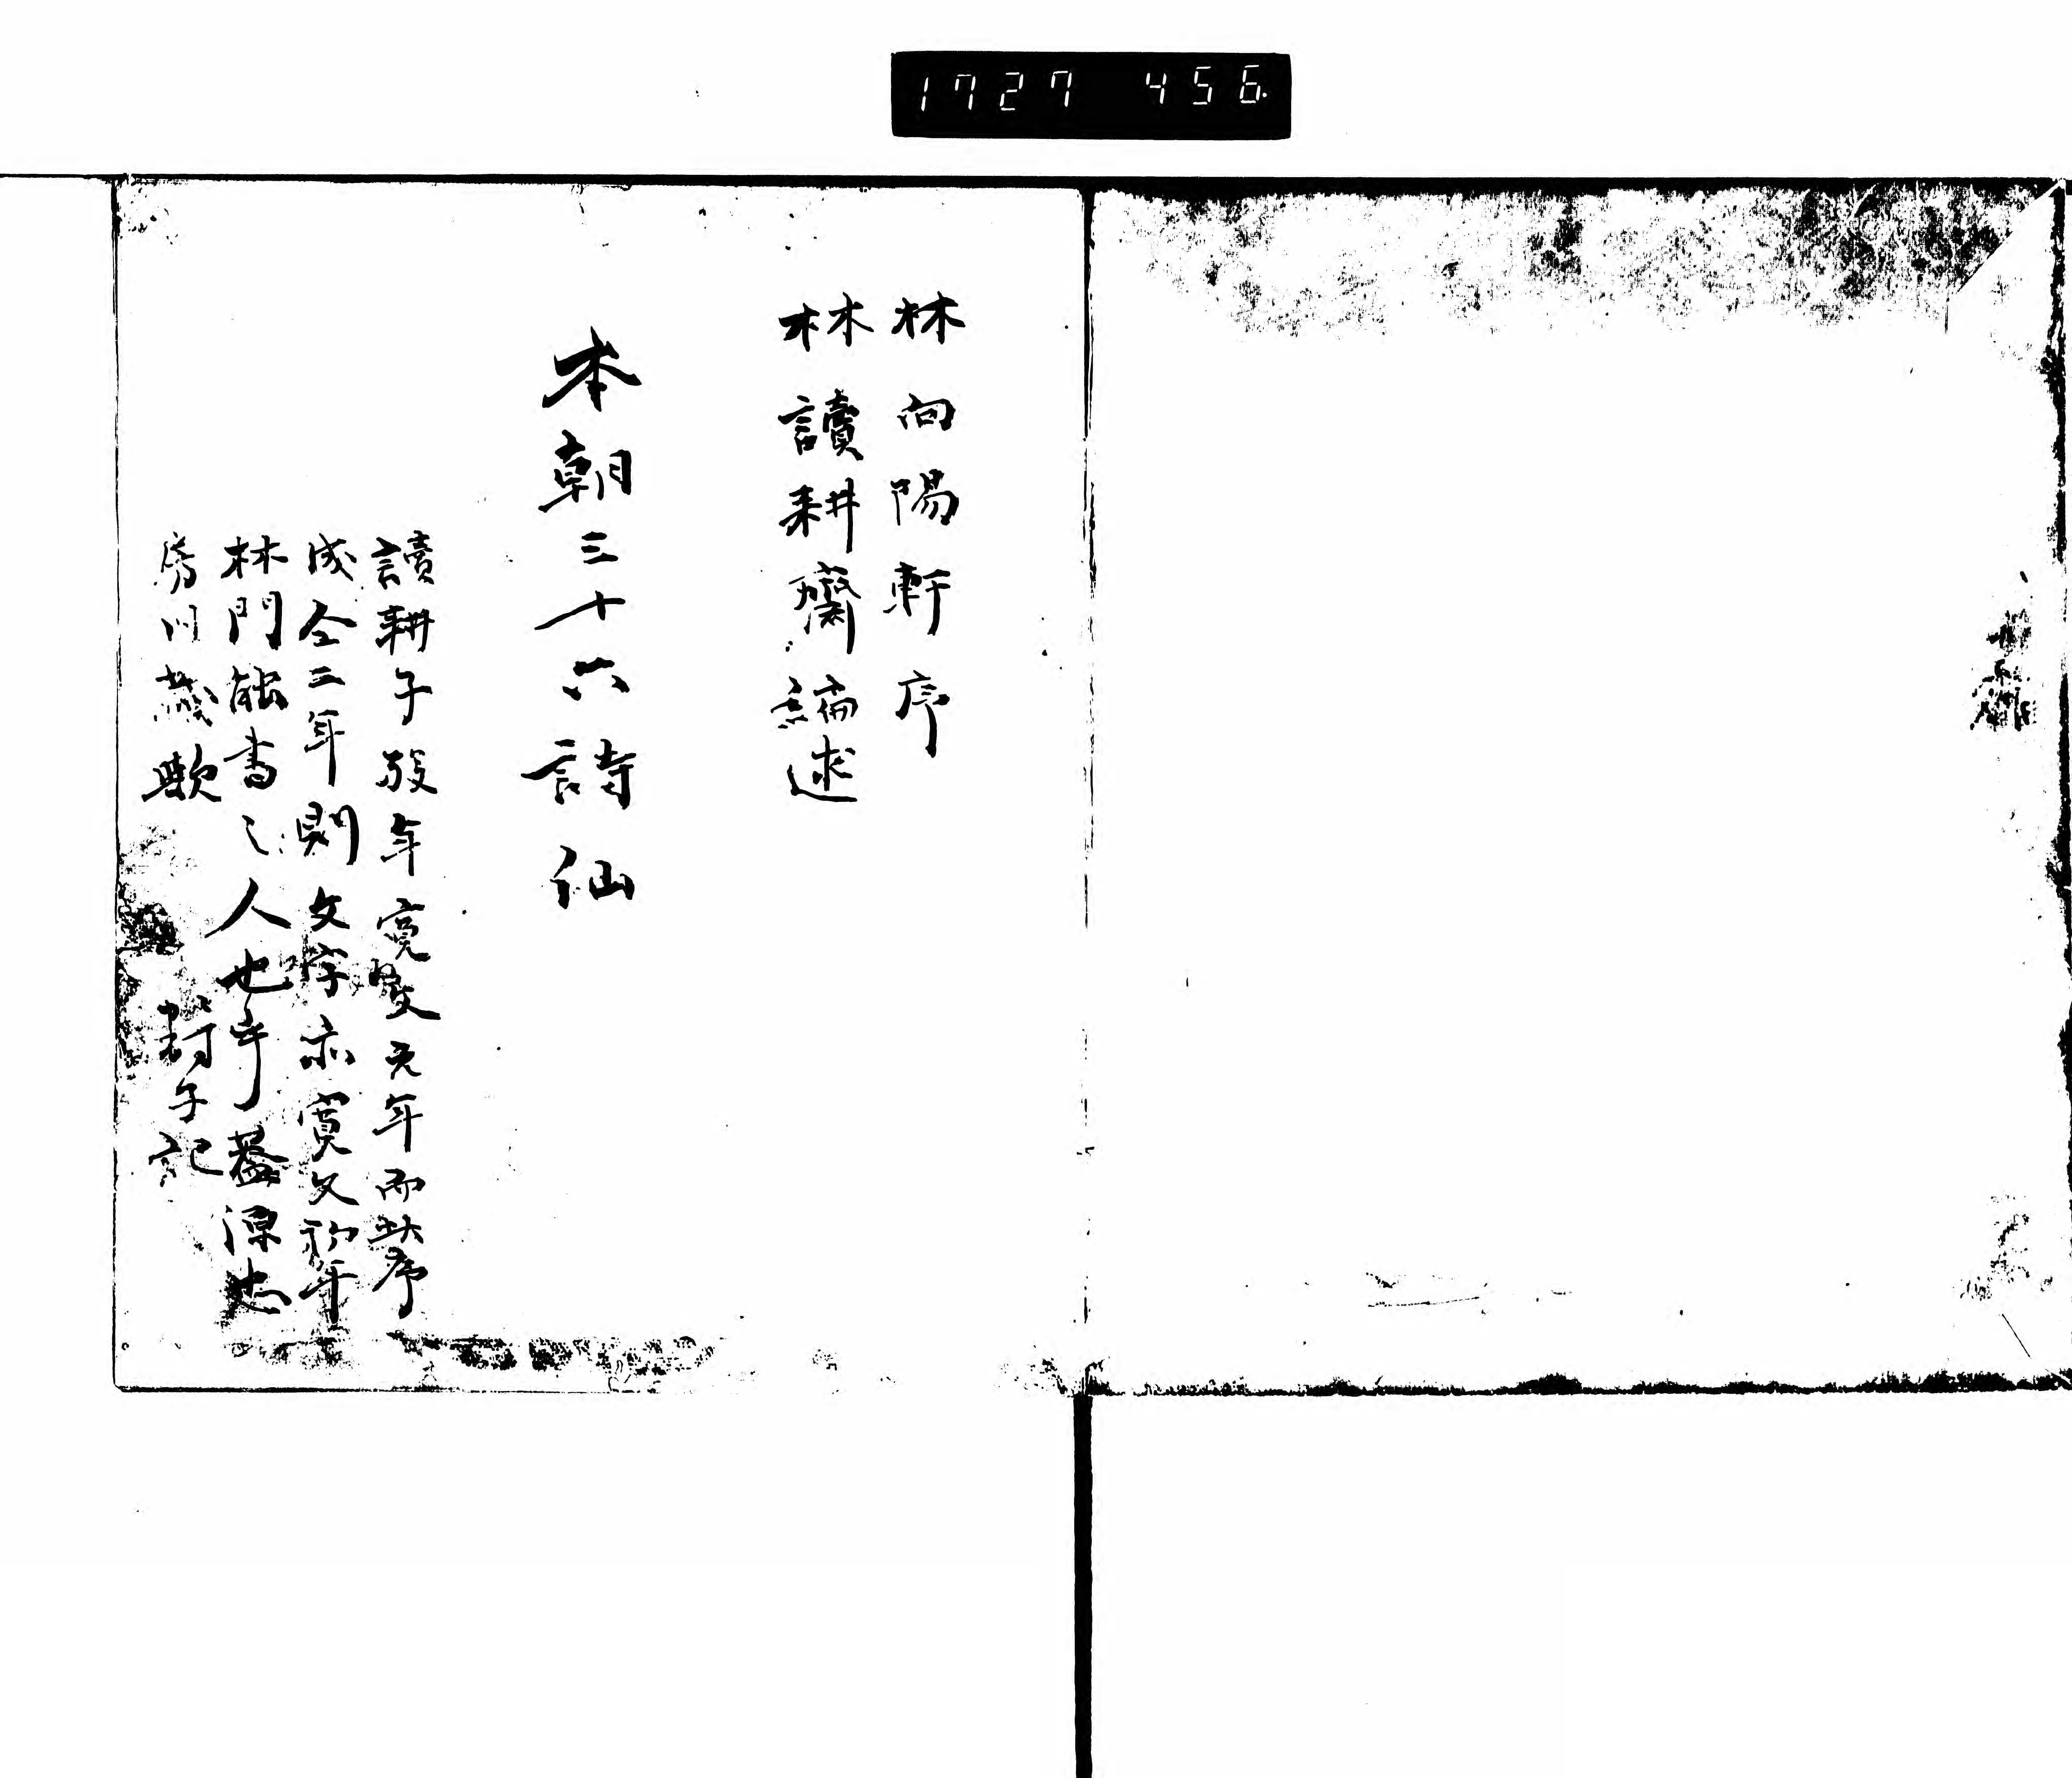 1727 456.
林向陽軒序
林讀耕齋編述
本朝三十六詩仙
讀耕子歿年寛文元年而此序
成仝二年則文字亦寛文初年
林門能書之人也乎蓋源忠
房旧蔵歟
封子記